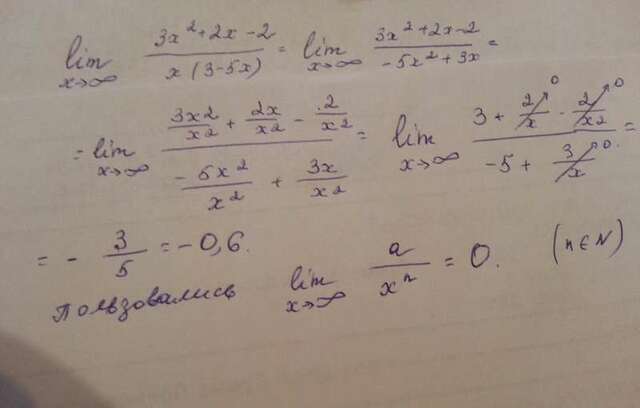 lim x→∞ (3x² + 2x - 2) / (x(3-5x)) = lim x→∞ (3x² + 2x - 2) / (-5x² + 3x) =
= lim x→∞ (3x2/x2 + 2x/x2 - 2/x2) / (-5x²/x² + 3x/x²) = lim x→∞ (3 + 2/x↗0 - 2/x2↗0) / (-5 + 3/x↗0) =
= - 3/5 = -0,6.
пользовались lim x→∞ a/xⁿ = 0. (n∈N)